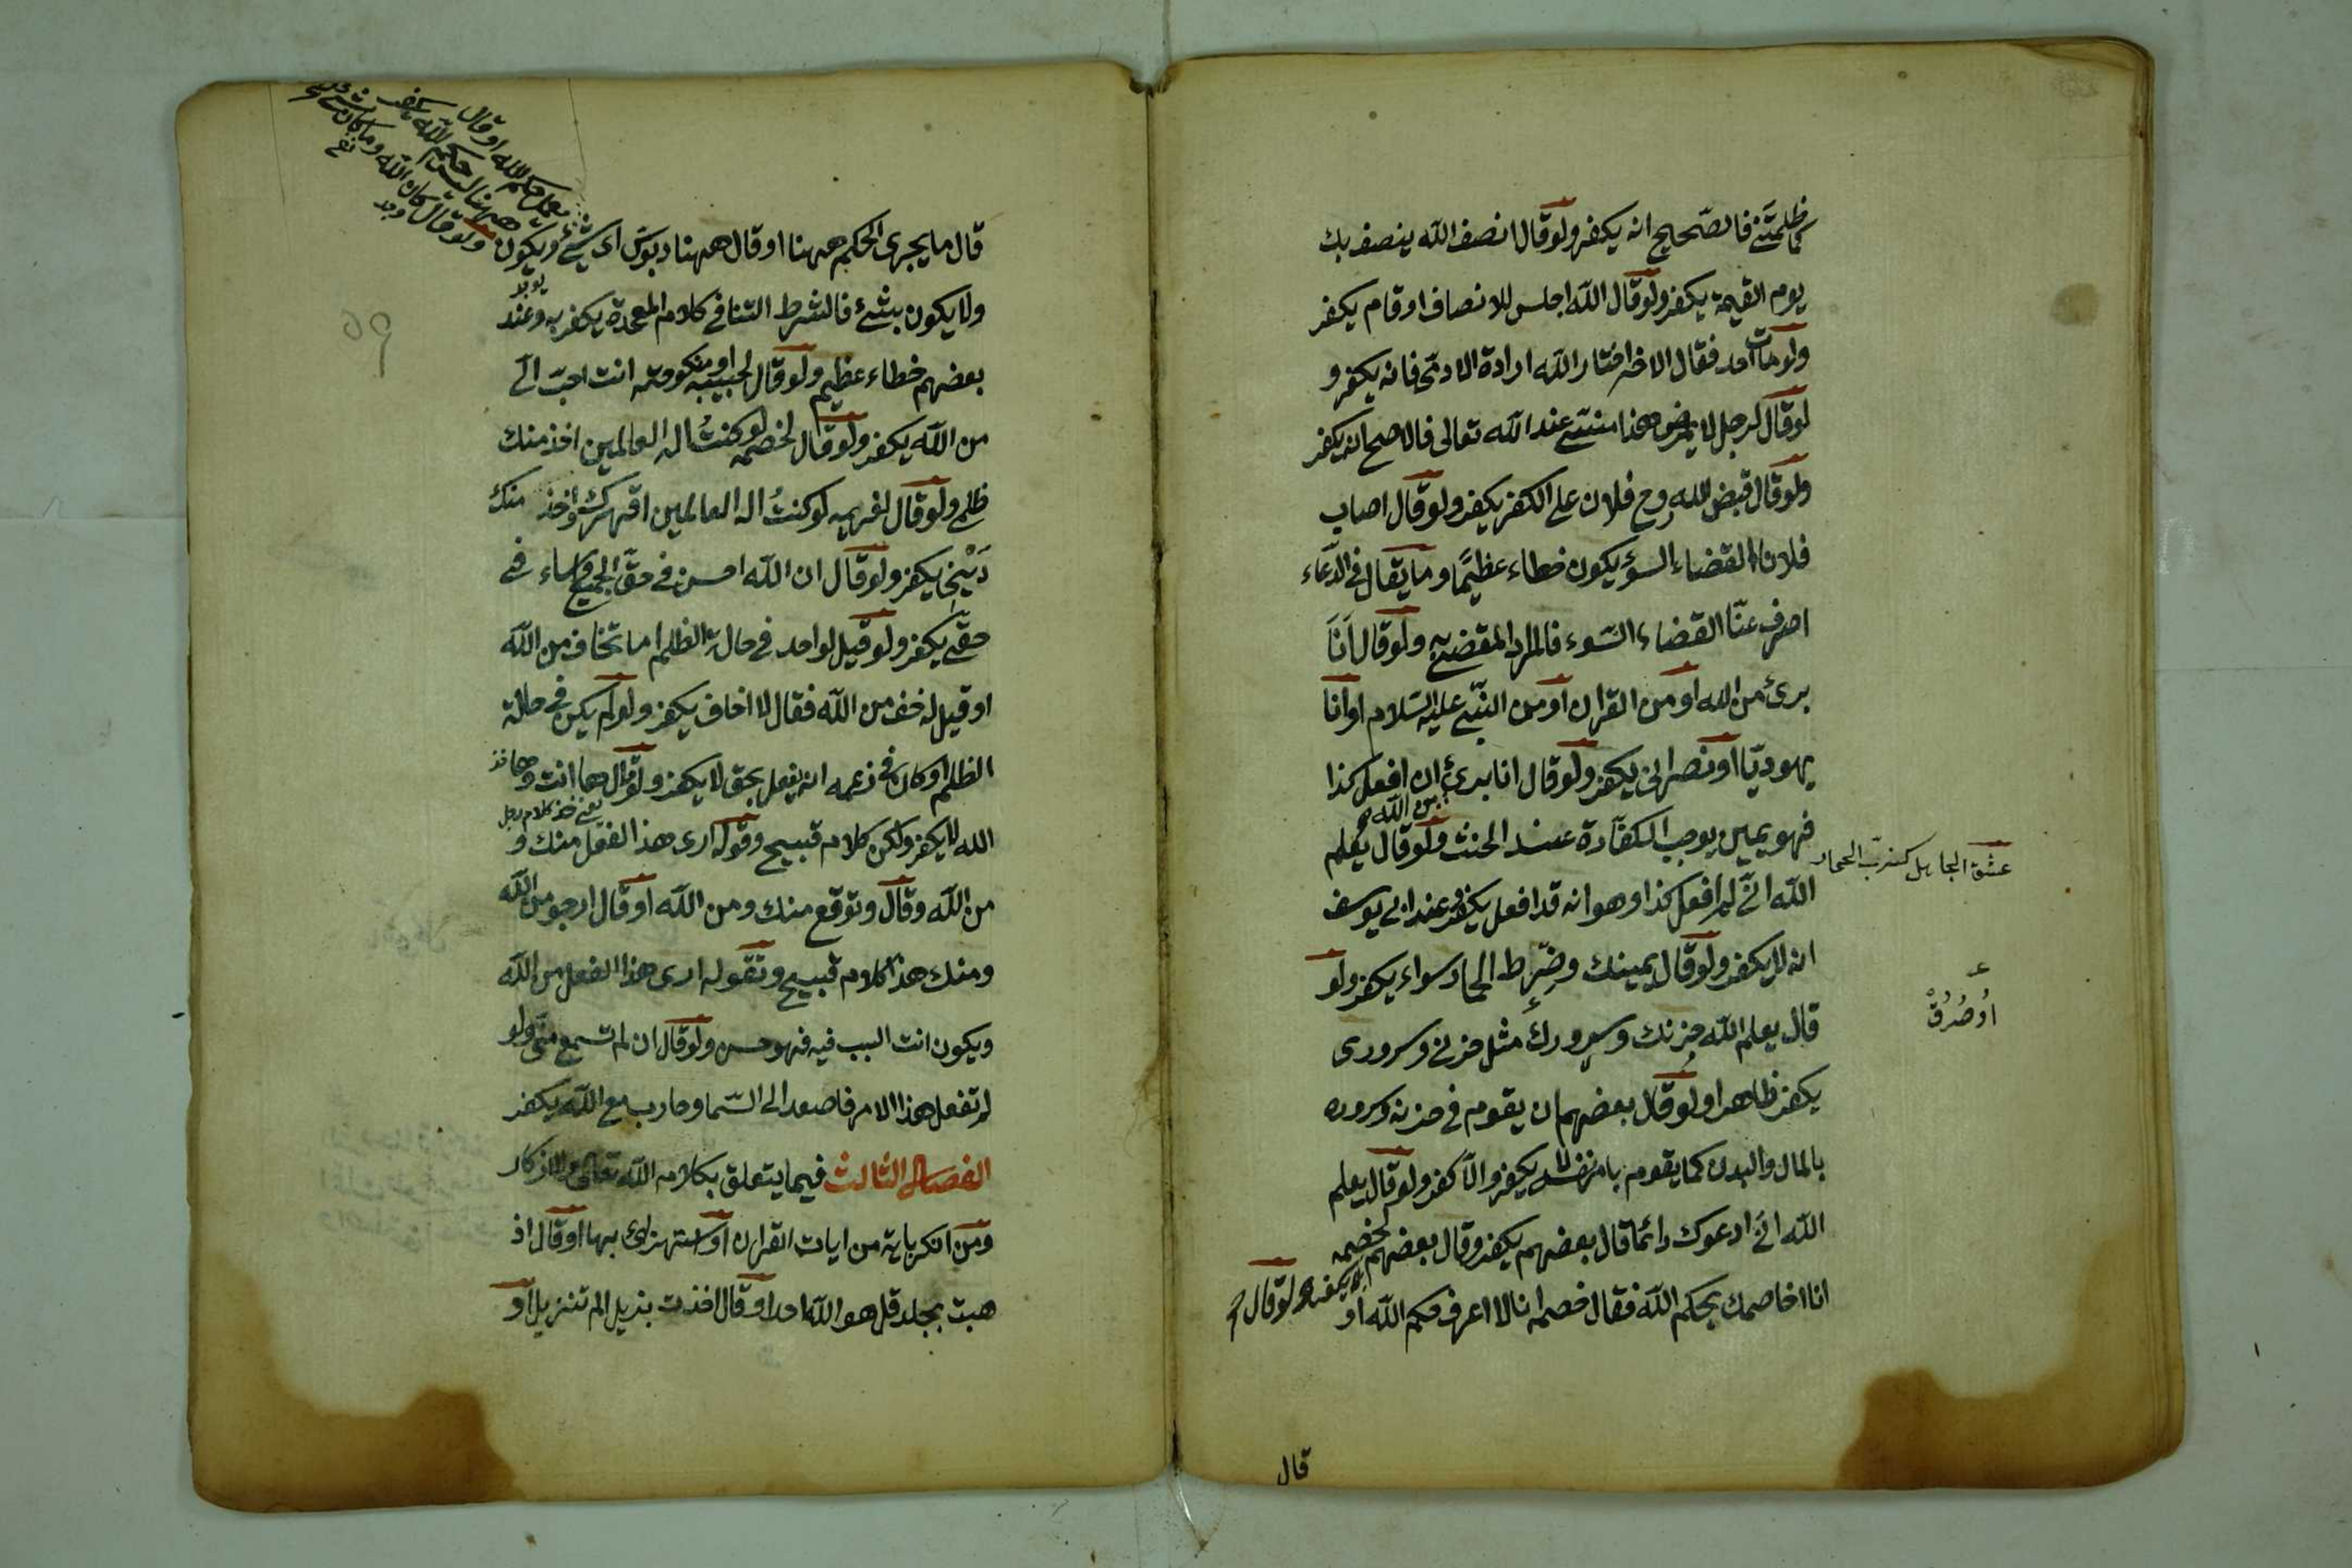 كما ظلمتنى فالصّحيح انه يكفر ولو قال انصف الله ينصف بك
يوم القيمة يكفر ولو قال الله اجلس للانصاف او قام يكفر
ولو مات احد فقال الاخر اختار الله ارادة الادنى فانه يكفر و
لو قال لرجل لا يمرض هذا منسى عند الله تعالى فالاصح انه يكفر
ولو قال قبض الله روح فلان على الكفر يكفر ولو قال اصاب
فلانا القضاء السوء يكون خطاء عظيمًا وما يقال فى الدّعاء
اصرف عنّا القضاء السّوء فالمراد المقضى به ولو قال اَنَا
برئ من الله او من القران او من النّبى عليه السّلام او انا
يهوديّا او نصرانى يكفر ولو قال انا برئ من الله ان افعل كذا
فهو يمين يوجب الكفّارة عند الحنث ولو قال يعلم
الله انّى لم افعل كذا وهو انه قد افعل يكفر وعند ابى يوسف
انه لا يكفر ولو قال يمينك وضرط الحمار سواء يكفر ولو
قال يعلم الله حزنك وسرورك مثل حزنى وسرورى
يكفر ظاهرا ولو قال بعضهم ان يقوم فى حزنه وسروره
بالمال والبدن كما يقوم بامر نفسه لا يكفر والّا كفر ولو قال يعلم
الله انى ادعوك دائما قال بعضهم يكفر وقال بعضهم لا يكفر ولو قال لخصمه
انا اخاصمك بحكم الله فقال خصمه انا لا اعرف حكم الله او
قال
عشق الجاهل كضرب الحمار
اُوصُرُقْ
قال ما يجرى الحكم ههنا او قال ههنا دبوس اى شئ ويكون
ولا يكون بشئ فالشرط الثنا فى كلام المعحدة يكفر به وعند
بعضهم خطاء عظيم ولو قال لحبيبه او منكوحته انت احبّ الىّ
من الله يكفر ولو قال لخصمه لو كنتُ اله العالمين اخذ منك
ظلمى ولو قال لغريمه لو كنتُ اله العالمين اقهرك واخذ منك
دَيْنى يكفر ولو قال ان الله احسن فى حقّ الجميع واساء فى
حقّى يكفر ولو قيل لواحد فى حالة الظلم اما تخاف من الله
او قيل له خف من الله فقال لا اخاف يكفر ولو لم يكن فى حالة
الظلم او كان فى زعمه انه يفعل بحق لا يكفر ولو قال هما انت وهما
الله لا يكفر ولكن كلام قبيح وقوله ارى هذا الفعل منك و
من الله وقال وتوقع منك ومن الله او قال ارجو من الله
ومنك هذا كلام قبيح وتقوله ارى هذا الفعل من الله
ويكون انت السبب فيه فهو حسن ولو قال ان لم تسمع منّى ولو
لم تفعل هذا الامر فاصعد الى السّما وحارب مع الله يكفر
الفصل الثالث فيما يتعلق بكلام الله تعالى والاذكار
ومن انكر باية من ايات القران او استهزئ بها او قال اذ
هبت بجلد قل هو الله احد او قال اخذت بذيل الم تنزيل او
يعمل حكم الله او قال
ههنا ليس حكم الله يكفر
ولو قال كان الله وما كان شئ